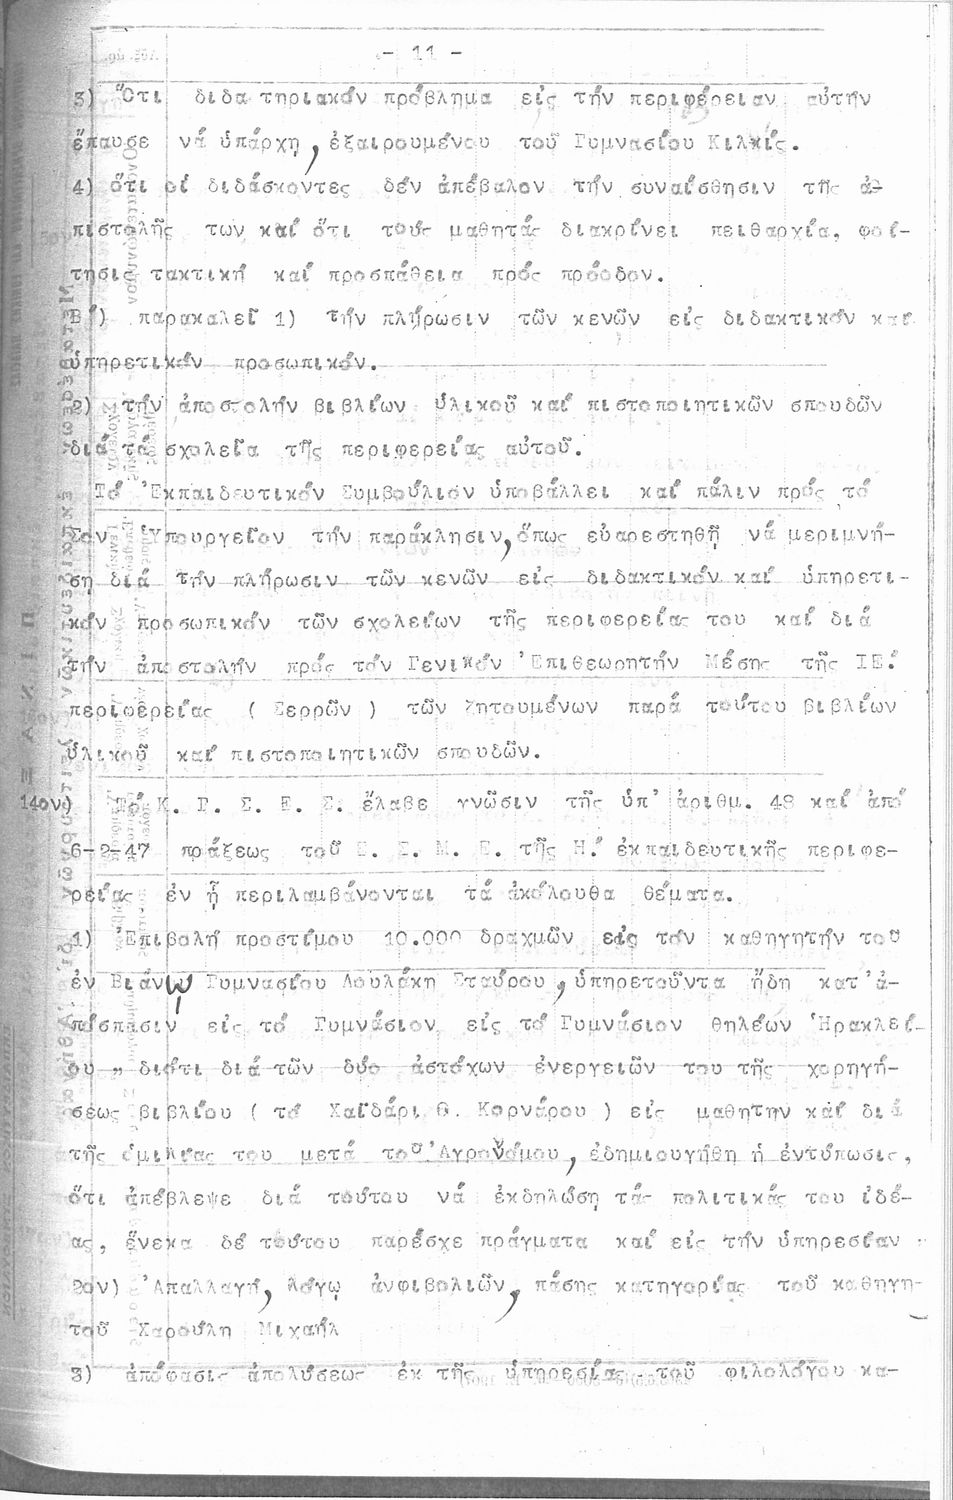 - 11 -
3) Ὅτι διδατηριακόν πρόβλημα εἰς τήν περιφέρειαν αὐτήν
ἔπαυσε νά ὑπάρχη, ἐξαιρουμένου τοῦ Γυμνασίου Κιλκίς.
4) ὅτι οἱ διδάσκοντες δέν ἀπέβαλον τήν συναίσθησιν τῆς ἀ-
πιστολῆς των καί ὅτι τούς μαθητάς διακρίνει πειθαρχία, φοί-
τησις τακτική καί προσπάθεια πρός πρόοδον.
Β΄) παρακαλεῖ 1) τήν πλήρωσιν τῶν κενῶν εἰς διδακτικόν καί
ὑπηρετικόν προσωπικόν.
2) τήν ἀποστολήν βιβλίων ὑλικοῦ καί πιστοποιητικῶν σπουδῶν
διά τά σχολεῖα τῆς περιφερείας αὐτοῦ.
Τό Ἐκπαιδευτικόν Συμβούλιον ὑποβάλλει καί πάλιν πρός τό
Σον Ὑπουργεῖον τήν παράκλησιν, ὅπως εὐαρεστηθῇ νά μεριμνή-
ση διά τήν πλήρωσιν τῶν κενῶν εἰς διδακτικόν καί ὑπηρετι-
κόν προσωπικόν τῶν σχολείων τῆς περιφερείας του καί διά
τήν ἀποστολήν πρός τόν Γενικόν Ἐπιθεωρητήν Μέσης τῆς ΙΕ΄
περιφερείας ( Σερρῶν ) τῶν ζητουμένων παρά τούτου βιβλίων
ὑλικοῦ καί πιστοποιητικῶν σπουδῶν.
14ον) Τό Κ. Γ. Σ. Ε. Σ. ἔλαβε γνῶσιν τῆς ὑπ' ἀριθμ. 48 καί ἀπό
6-2-47 πράξεως τοῦ Ε. Σ. Μ. Ε. τῆς Η΄ ἐκπαιδευτικῆς περιφε-
ρείας ἐν ᾗ περιλαμβάνονται τά ἀκόλουθα θέματα.
1) Ἐπιβολή προστίμου 10.000 δραχμῶν εἰς τόν καθηγητήν τοῦ
ἐν Βιάνῳ Γυμνασίου Λουλάκη Σταύρου, ὑπηρετοῦντα ἤδη κατ' ἀ-
πόσπασιν εἰς τό Γυμνάσιον εἰς τό Γυμνάσιον θηλέων Ἡρακλεί-
ου „ διότι διά τῶν δύο ἀστόχων ἐνεργειῶν του τῆς χορηγή-
σεως βιβλίου ( τό Χαϊδάρι Θ. Κορνάρου ) εἰς μαθητην καί διά
τῆς ὁμιλίας του μετά τοῦ Ἀγρονόμου, ἐδημιουγήθη ἡ ἐντύπωσις,
ὅτι ἀπέβλεψε διά τούτου νά ἐκδηλώση τάς πολιτικάς του ἰδέ-
ας, ἕνεκα δέ τούτου παρέσχε πράγματα καί εἰς τήν ὑπηρεσίαν
2ον) Ἀπαλλαγή, λόγῳ ἀνφιβολιῶν, πάσης κατηγορίας τοῦ καθηγη-
τοῦ Χαρούλη Μιχαήλ
3) ἀπόφασις ἀπολύσεως ἐκ τῆς ὑπηρεσίας τοῦ φιλολόγου κα-